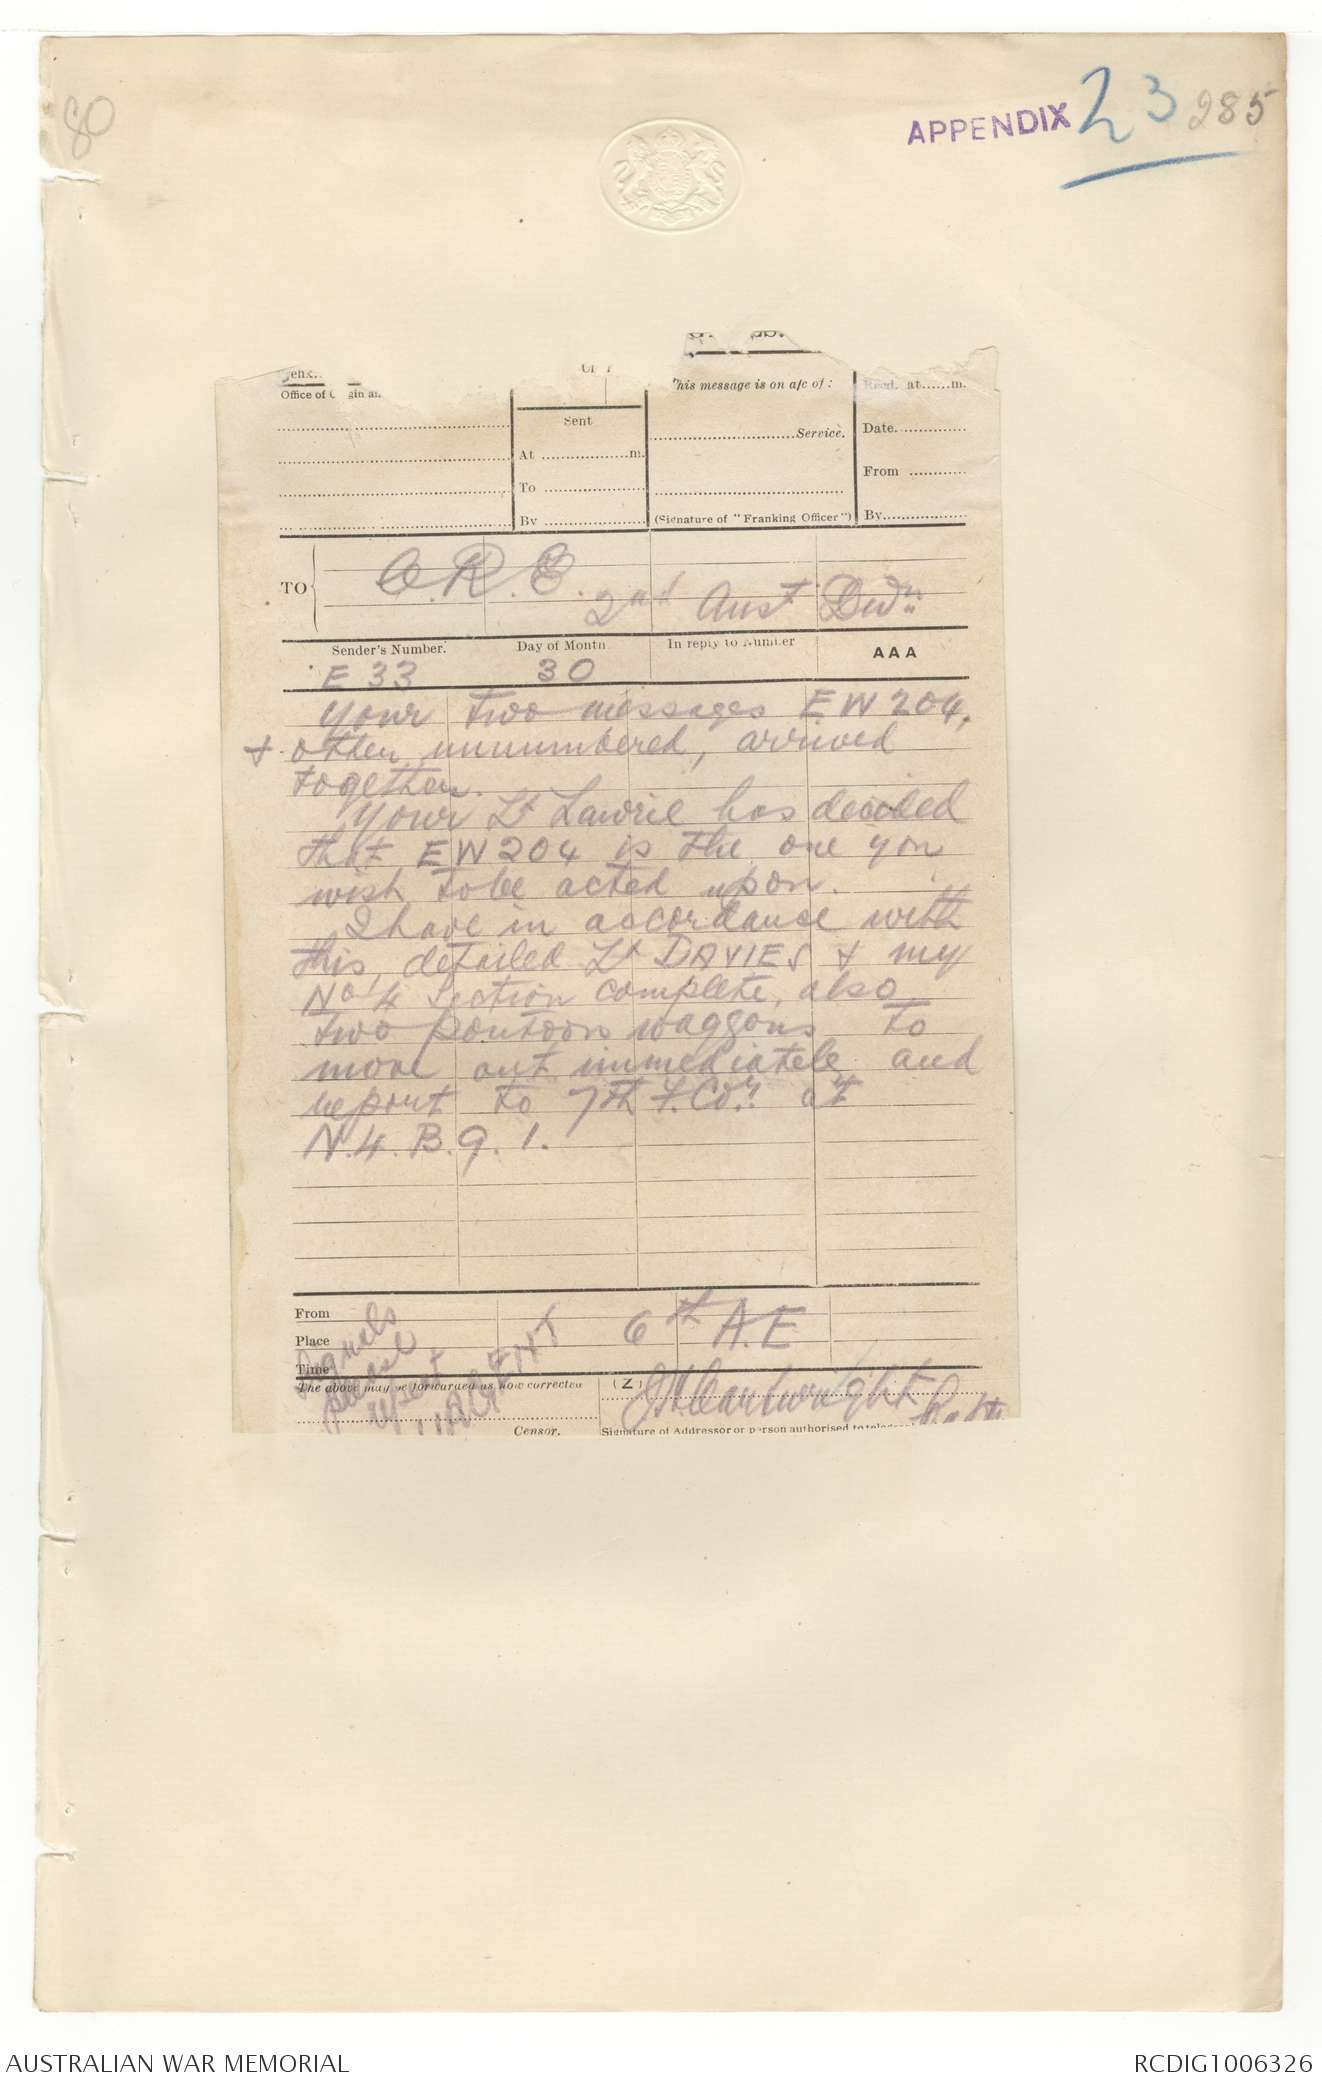 80
APPENDIX 23 285
This message is on a/c of :
Recd. at......m.
Office of Origin an
Sent
Service.
Date
At ..................m.
From
To
By
(Signature of "Franking Officer")
By
TO
C.R.E. 2nd Aust Divn
Sender's Number.
Day of Month
In reply to Number
AAA
E 33
30
Your two messages EW204,
& other unnumbered, arrived
together.
Your Lt Lawrie has decided
that EW204 is the one you
wish to be acted upon.
I have in accordance with
this, detailed Lt DAVIES & my
No 4 Section complete, also
two pontoon waggons to
move out immediately and
report to 7th F.Coy. at
N.4.B.9.1.
From
Place
Time
6th A.E
Signals
please
repeat
URGENT
The above may be forwarded as now corrected
(Z)
JHCartwright
Censor.
Signature of Addressor or person authorised to
AUSTRALIAN WAR MEMORIAL
RCDIG1006326